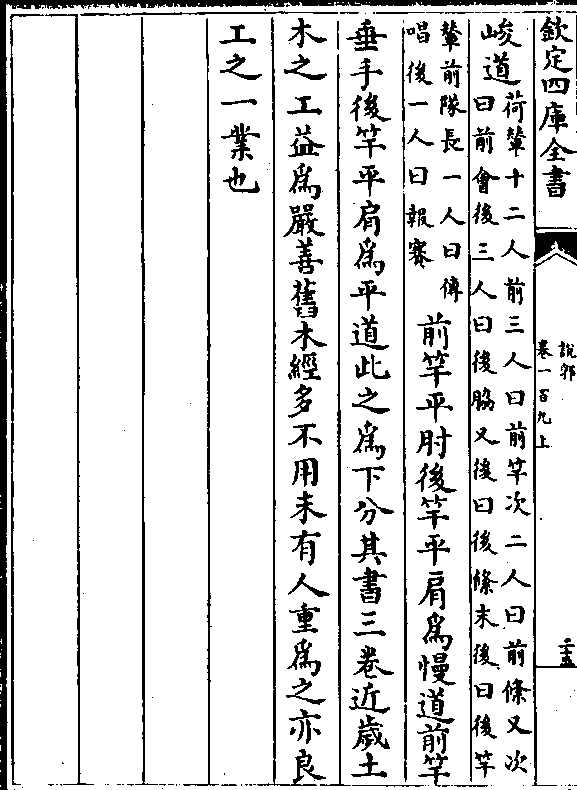 欽定四庫全書
說郛
卷一百九上
二十五
峻道
荷輦十二人前三人曰前竿次二人曰前條又次
曰前會後三人曰後脇又後曰後條末後曰後竿
輦前隊長一人曰傳
唱後一人曰報賽
前竿平肘後竿平肩爲慢道前竿
垂手後竿平肩爲平道此之爲下分其書三卷近歲土
木之工益爲嚴善舊木經多不用未有人重爲之亦良
工之一業也